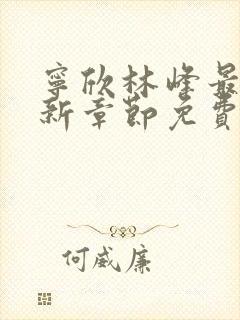 寧欣林峰最
新章節免費
何威廉